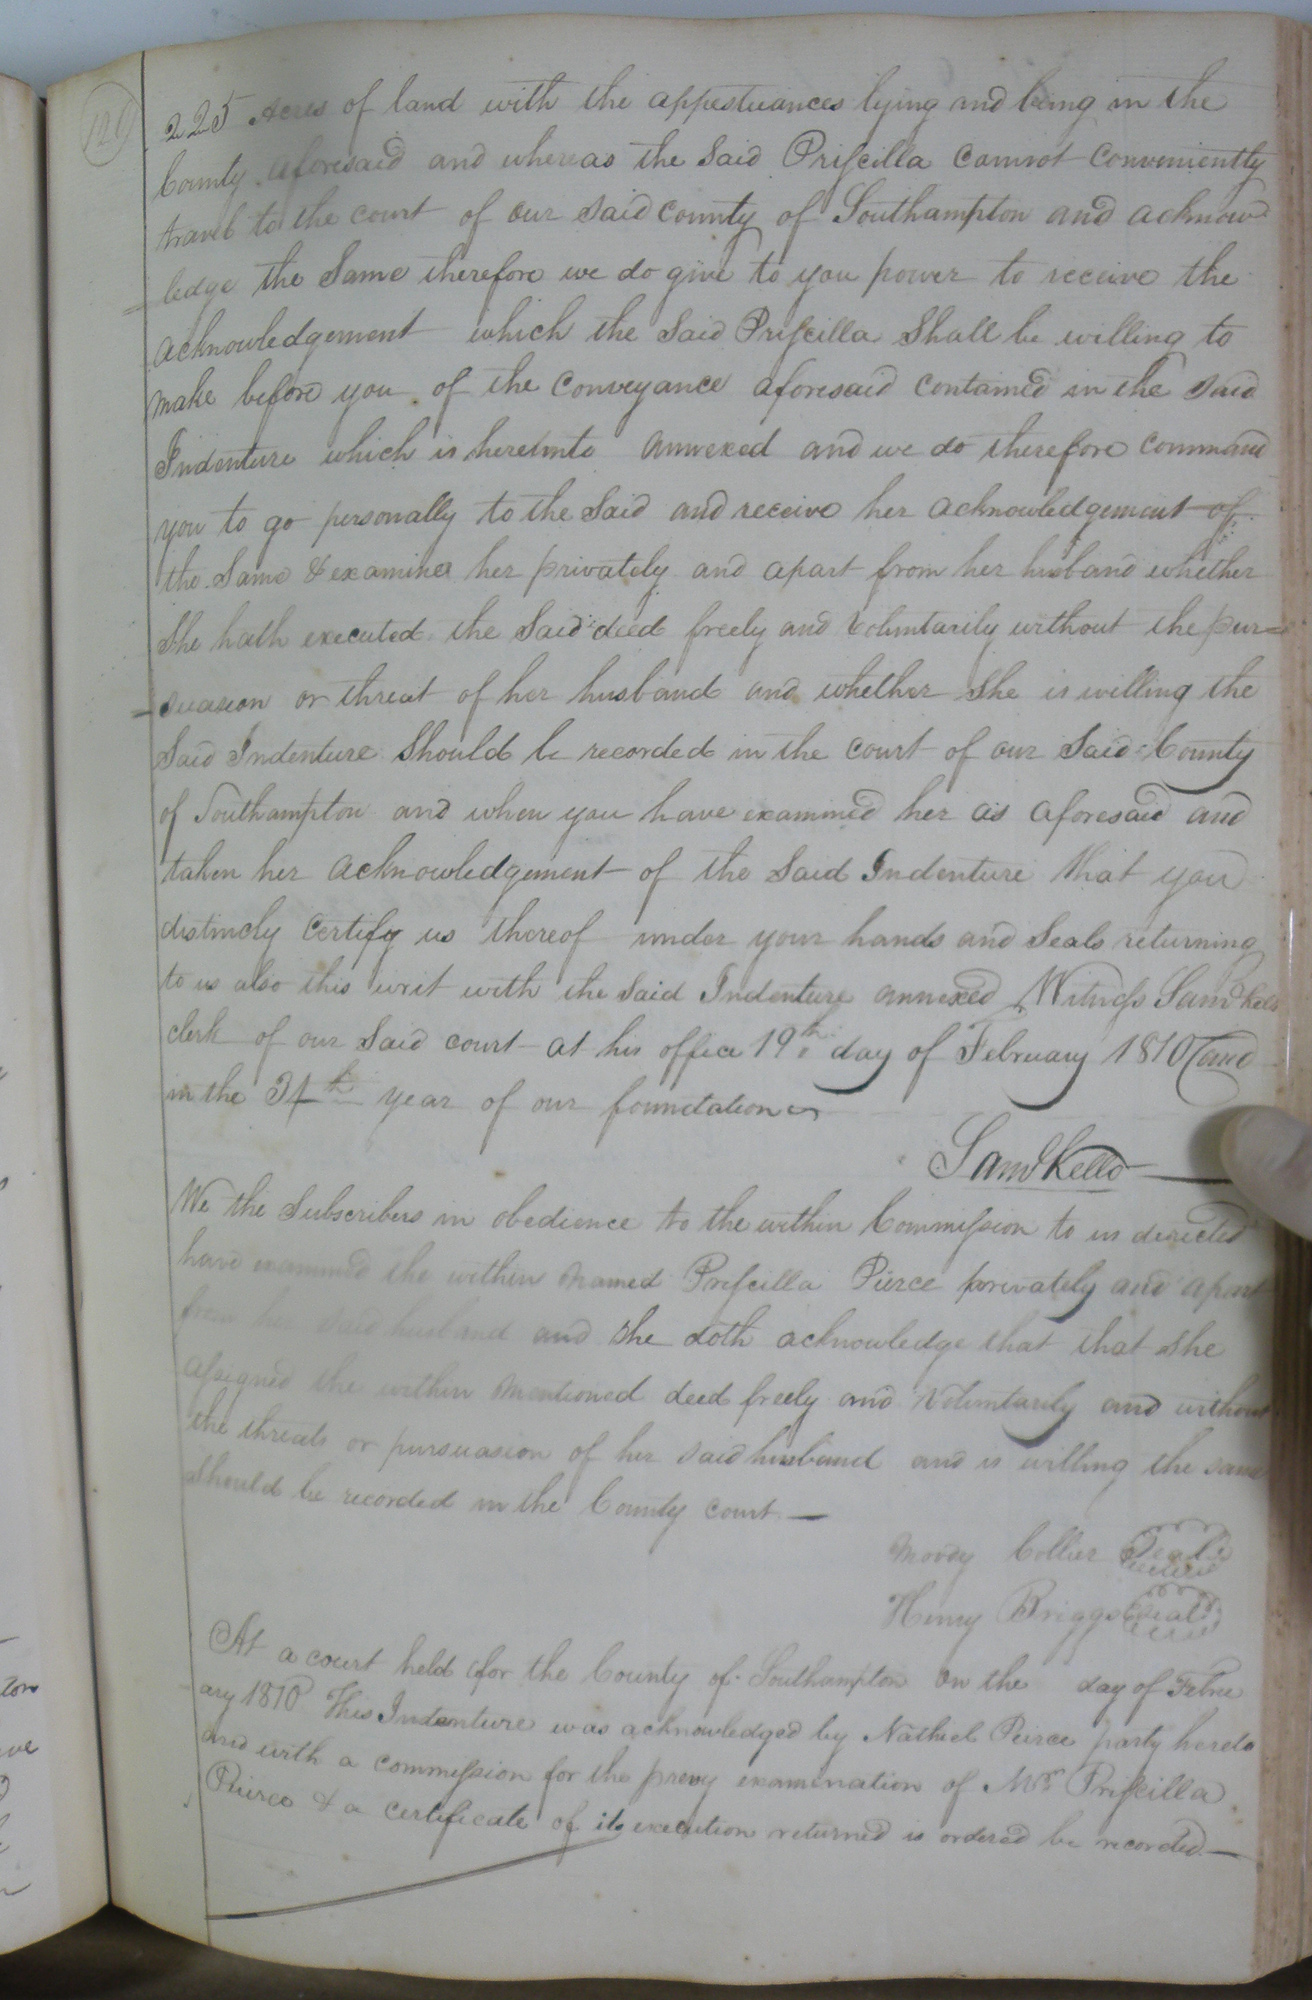 129
225 Acres of land with the appestuances lying and being in the
County aforesaid and whereas the Said Priscilla cannot conveniently
travel to the court of our said county of Southampton and acknow
ledge the Same therefore we do give to you power to receive the
acknowledgement which the Said Priscilla Shall be willing to
make before you of the conveyance aforesaid contained in the said
Indenture which is hereunto annexed and we do therefore command
you to go personally to the Said and receive her acknowledgement of
the Same & examine her privately and apart from her husband whether
She hath executed the Said deed freely and voluntarily without the pur=
suasion or threat of her husband and whether She is willing the
Said Indenture Should be recorded in the court of our Said County
of Southampton and when you have examined her as aforesaid and
taken her acknowledgement of the Said Indenture that you
distincly certify us thereof under your hands and Seals returning
to us also this writ with the Said Indenture annexed Witness Saml Kello
clerk of our Said court at his office 19th day of February 1810 and
in the 34th year of our foundation
Saml Kello
We the Subscribers in obedience to the within Commission to us directed
have examined the within named Priscilla Pierce privately and apart
from her said husband and She doth acknowledge that that She
assigned the within mentioned deed freely and voluntarily and without
the threats or pursuasion of her said husband and is willing the same
should be recorded in the County court —
Moody Collier Seal
Henry Briggs Seal
At a court held for the County of Southampton on the day of Febru
ary 1810 This Indenture was acknowledged by Nathiel Peirce party hereto
and with a commission for the prevy examination of Mrs Priscilla
Peirce & a certificate of its execution returned is ordered be recorded —